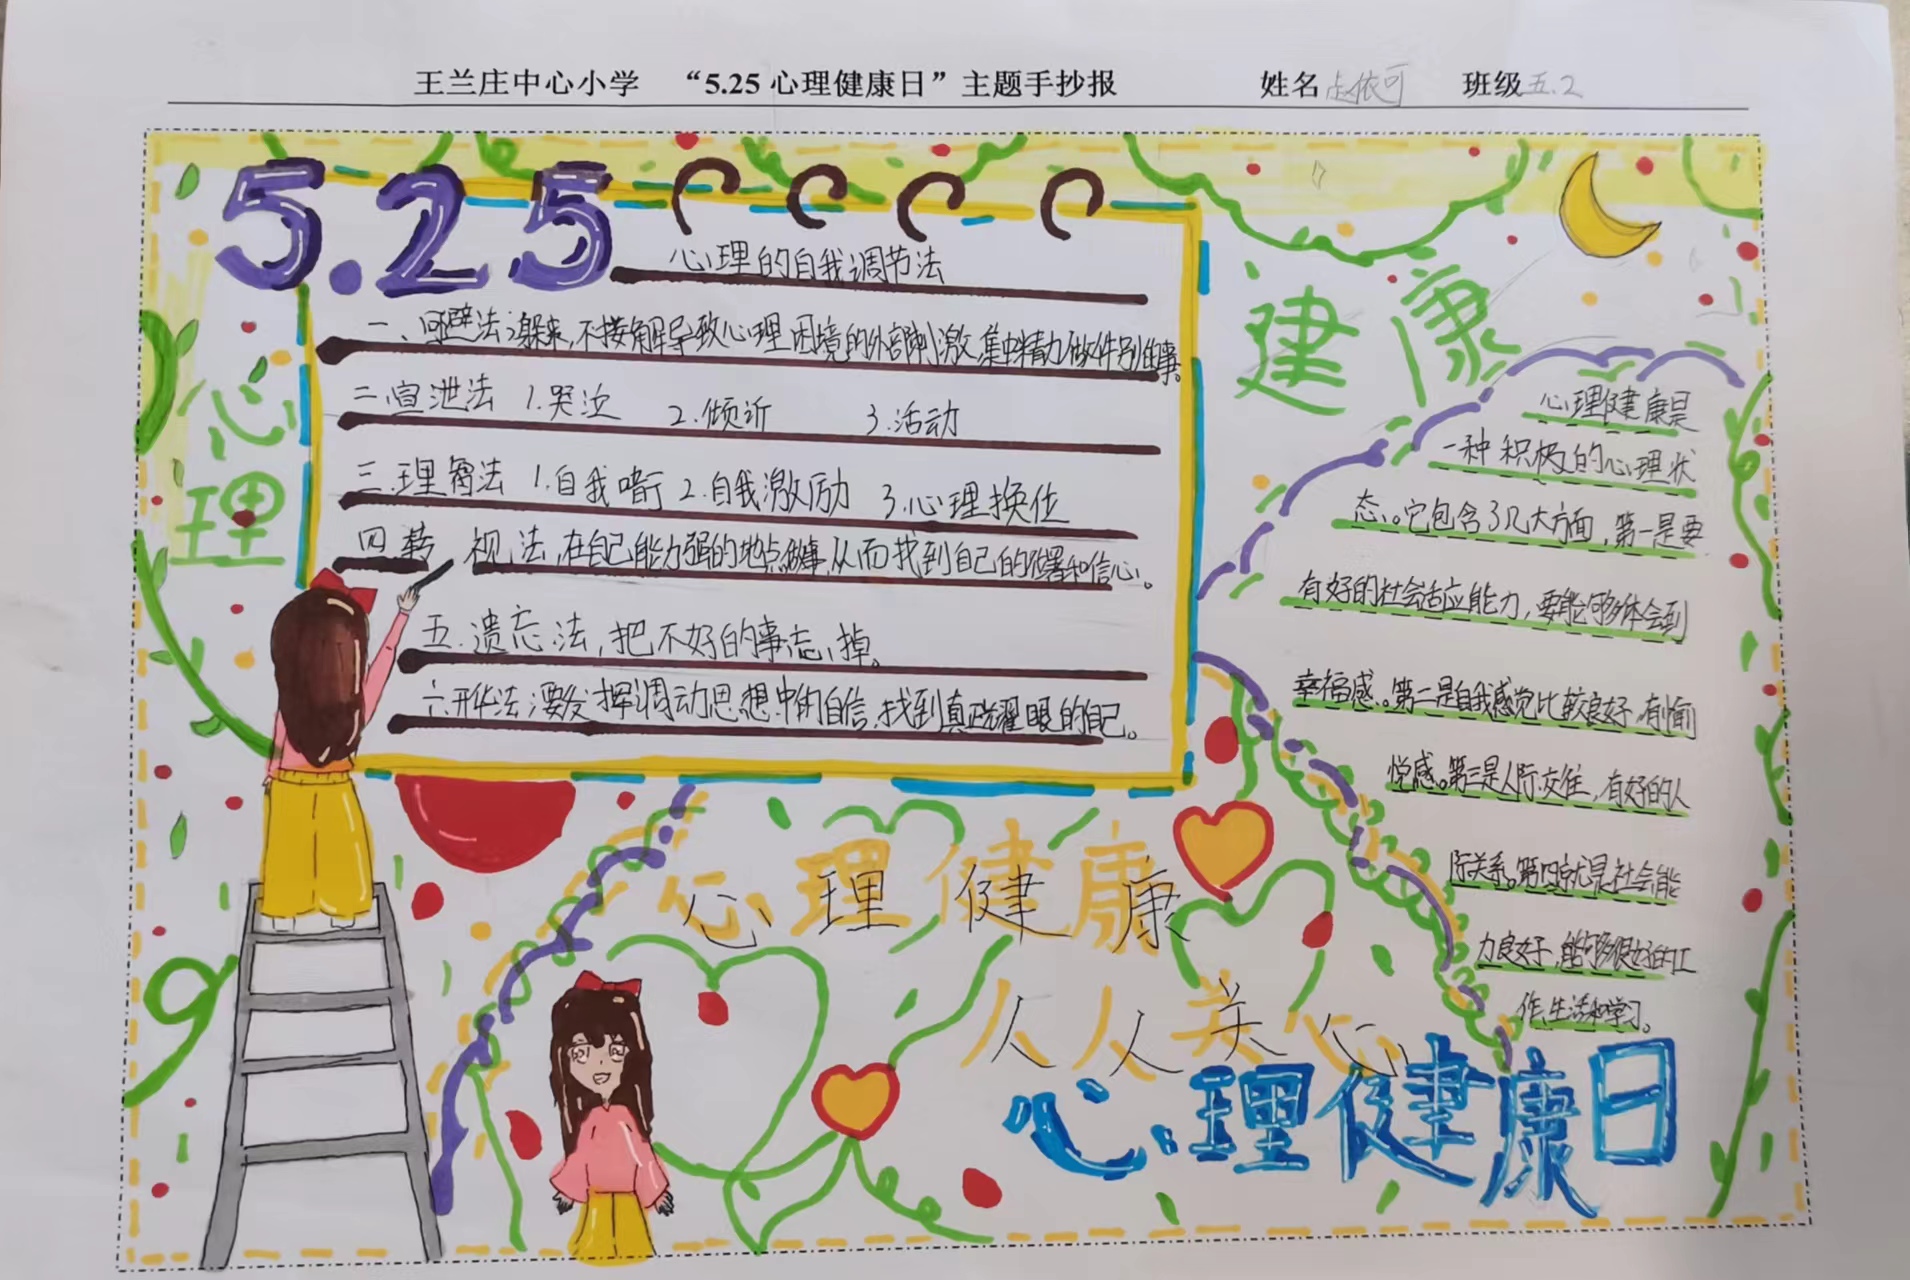 王兰庄中心小学 “5.25心理健康日”主题手抄报 姓名 依可 班级 五.2
5.25
心理的自我调节法
一、回避法:躲来,不接解导致心理困境的外部刺激,集中精力做件别的事。
二.宣泄法 1.哭泣 2.倾诉 3.活动
三.理智法 1.自我 2.自我激励 3.心理换位
四 转 视法,在自己能力强的地点做事,从而找到自己的 和信心。
五.遗忘法,把不好的事忘掉。
六.升华法:要发挥调动思想中的自信,找到真正耀眼的自己。
心理
健康
心理健康是
一种积极的心理状
态。它包含了几大方面,第一是要
有好的社会适应能力,要能够体会到
幸福感。第二是自我感觉比较良好,有愉
悦感。第三是人际交往,有好的人
际关系。第四就是社会能
力良好,能够很好的工
作,生活和学习。
心理健康
人人关心
心理健康日